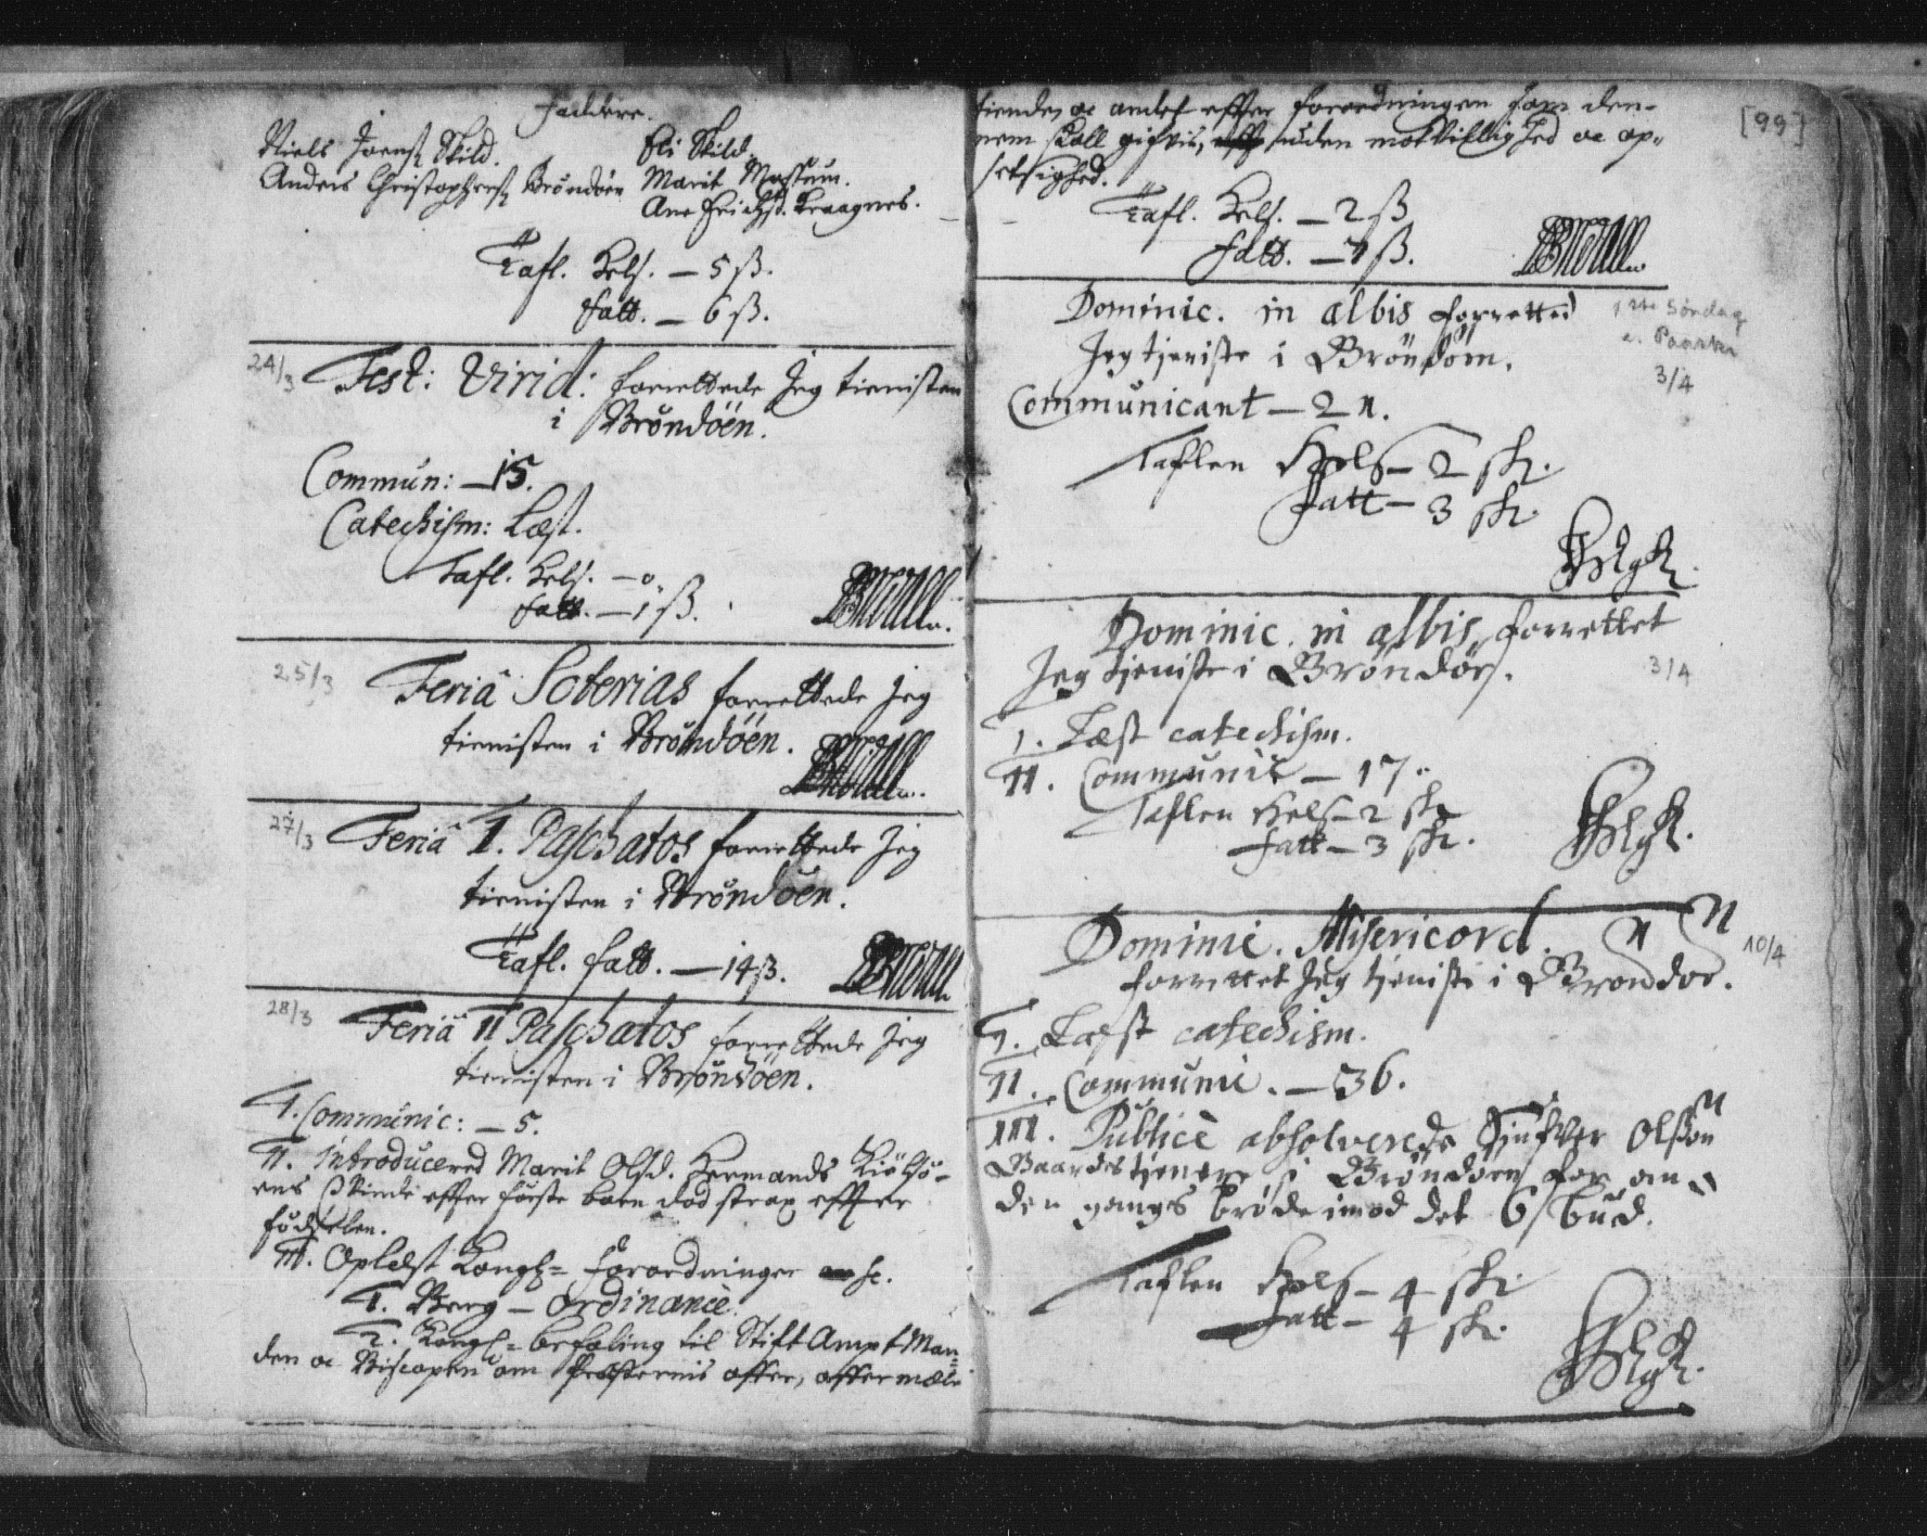 Faddere.
Niels Joensz Skild.
Anders Christophersz Bröndöen
Eli Skild.
Marit Mossum.
Ane Erichsd. Kraagnes.
Tafl. Hels. – 5 ß.
Fatt. – 6 ß.
24/3
Fest: Virid: forrettede Jeg tienisten
i Bröndöen.
Commun: – 15.
Catechism: Læst.
Tafl. Hels. – 0.
Fatt. – 1 ß.
25/3
Feriâ Soterias forrettede Jeg
tienisten i Bröndöen.
27/3
Feriâ I. Paschatos forrettede Jeg
tienisten i Bröndöen.
Tafl. Fatt. – 14 ß.
28/3
Feriâ II Paschatos forrettede Jeg
tienisten i Bröndöen.
I. Communic: – 5.
II. Introducered Marit Olsd. Hermands
ens qvinde effter første barn død strax effter
födselen.
III. Oplæst Kongl= Forordninger
1. Berg – Ordinance.
2. Kongl= befaling til Stift Ampt Man=
den oc Biscopen om Præsternis offer,
[99]
tienden oc andet effter forordningen som den-
nem skall gifvis, uden motvillighed oc op„
setsighed.
Tafl. Hels. – 2 ß
Fatt. – 4 ß.
Dominic. in albis forretted
Jeg tjeniste i Bröndöen.
1ste Söndag
e. Paaske
3/4
Communicant – 21.
Taflen Hels – 2 sk.
Fatt – 3 sk.
Dominic. in albis forrettet
Jeg tjeniste i Bröndöe.
3/4
I. Læst catechism.
II. Communic – 17.
Taflen Hels – 2 sk
Fatt – 3 sk.
Dominic. Misericord.
10/4
forrettet Jeg tjeniste i Bröndöe.
I. Læst catechism.
II. Communic. – 36.
III. Publicè absolverede Olsön
tjenere i Bröndöen for an-
den gangs bröde imod det 6 bud.
Taflen Hels – 4 sk.
Fatt – 4 sk.